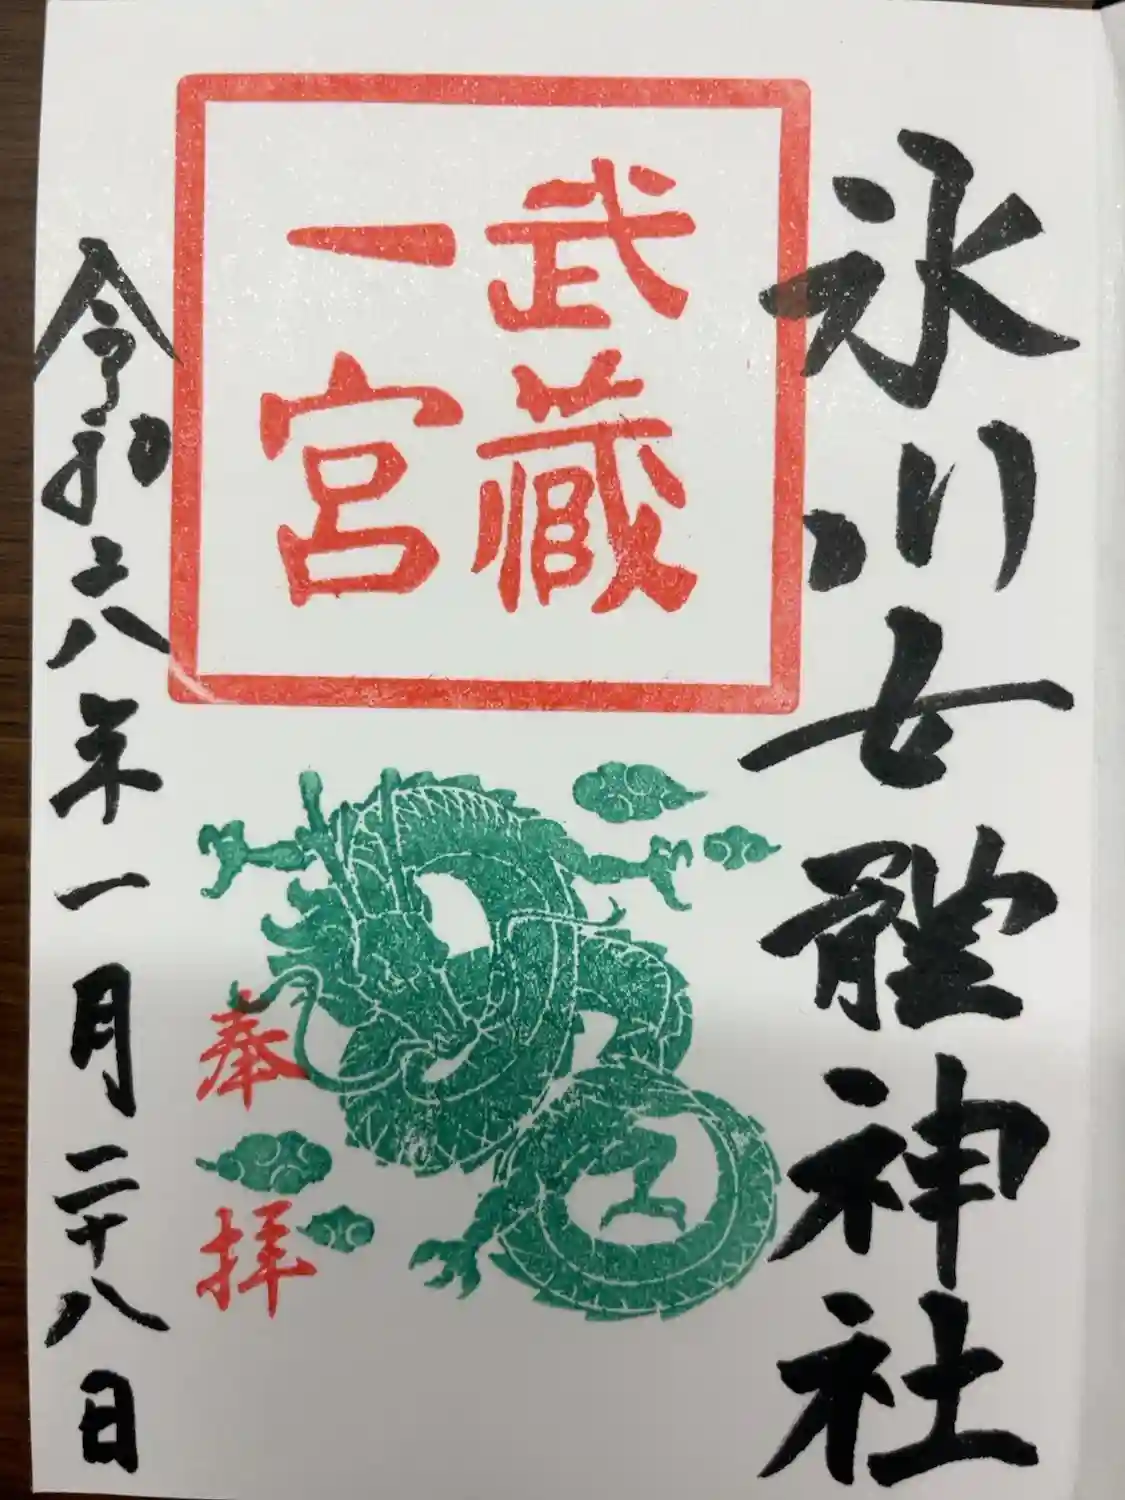 氷川女體神社
武藏
一宮
奉拝
令和六年一月二十八日